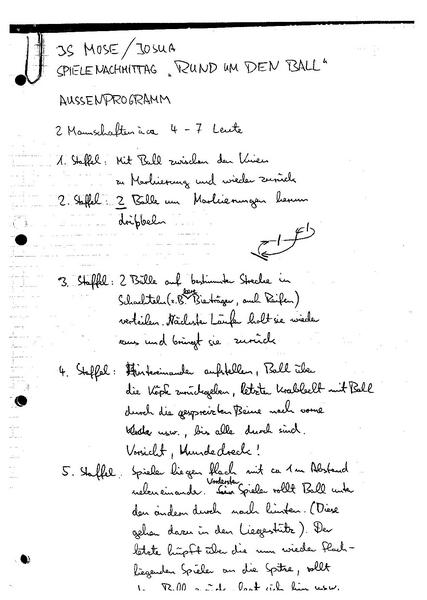 JS MOSE/JOSUA
SPIELENACHMITTAG „RUND UM DEN BALL"
AUSSENPROGRAMM
2 Mannschaften à ca 4 - 7 Leute
1. Staffel: Mit Ball zwischen den Knien
zu Markierung und wieder zurück
2. Staffel: 2 Bälle um Markierungen herum
dribbeln
3. Staffel: 2 Bälle auf bestimmter Strecke in
Schachteln (z.B. leere Bierträger, auch Reifen)
verteilen. Nächster Läufer holt sie wieder
raus und bringt sie zurück
4. Staffel: Hintereinander aufstellen, Ball über
die Köpfe zurückgeben, letzte krabbelt mit Ball
durch die gespreizten Beine nach vorne
usw., bis alle durch sind.
Vorsicht, Hundedreck!
5. Staffel. Spieler liegen flach mit ca 1m Abstand
nebeneinander. Vorderster Spieler rollt Ball unter
den andern durch nach hinten. (Diese
gehen dazu in den Liegestütz). Der
letzte hüpft über die nun wieder flach-
liegenden Spieler an die Spitze, rollt
den Ball zurück, legt sich hin usw.